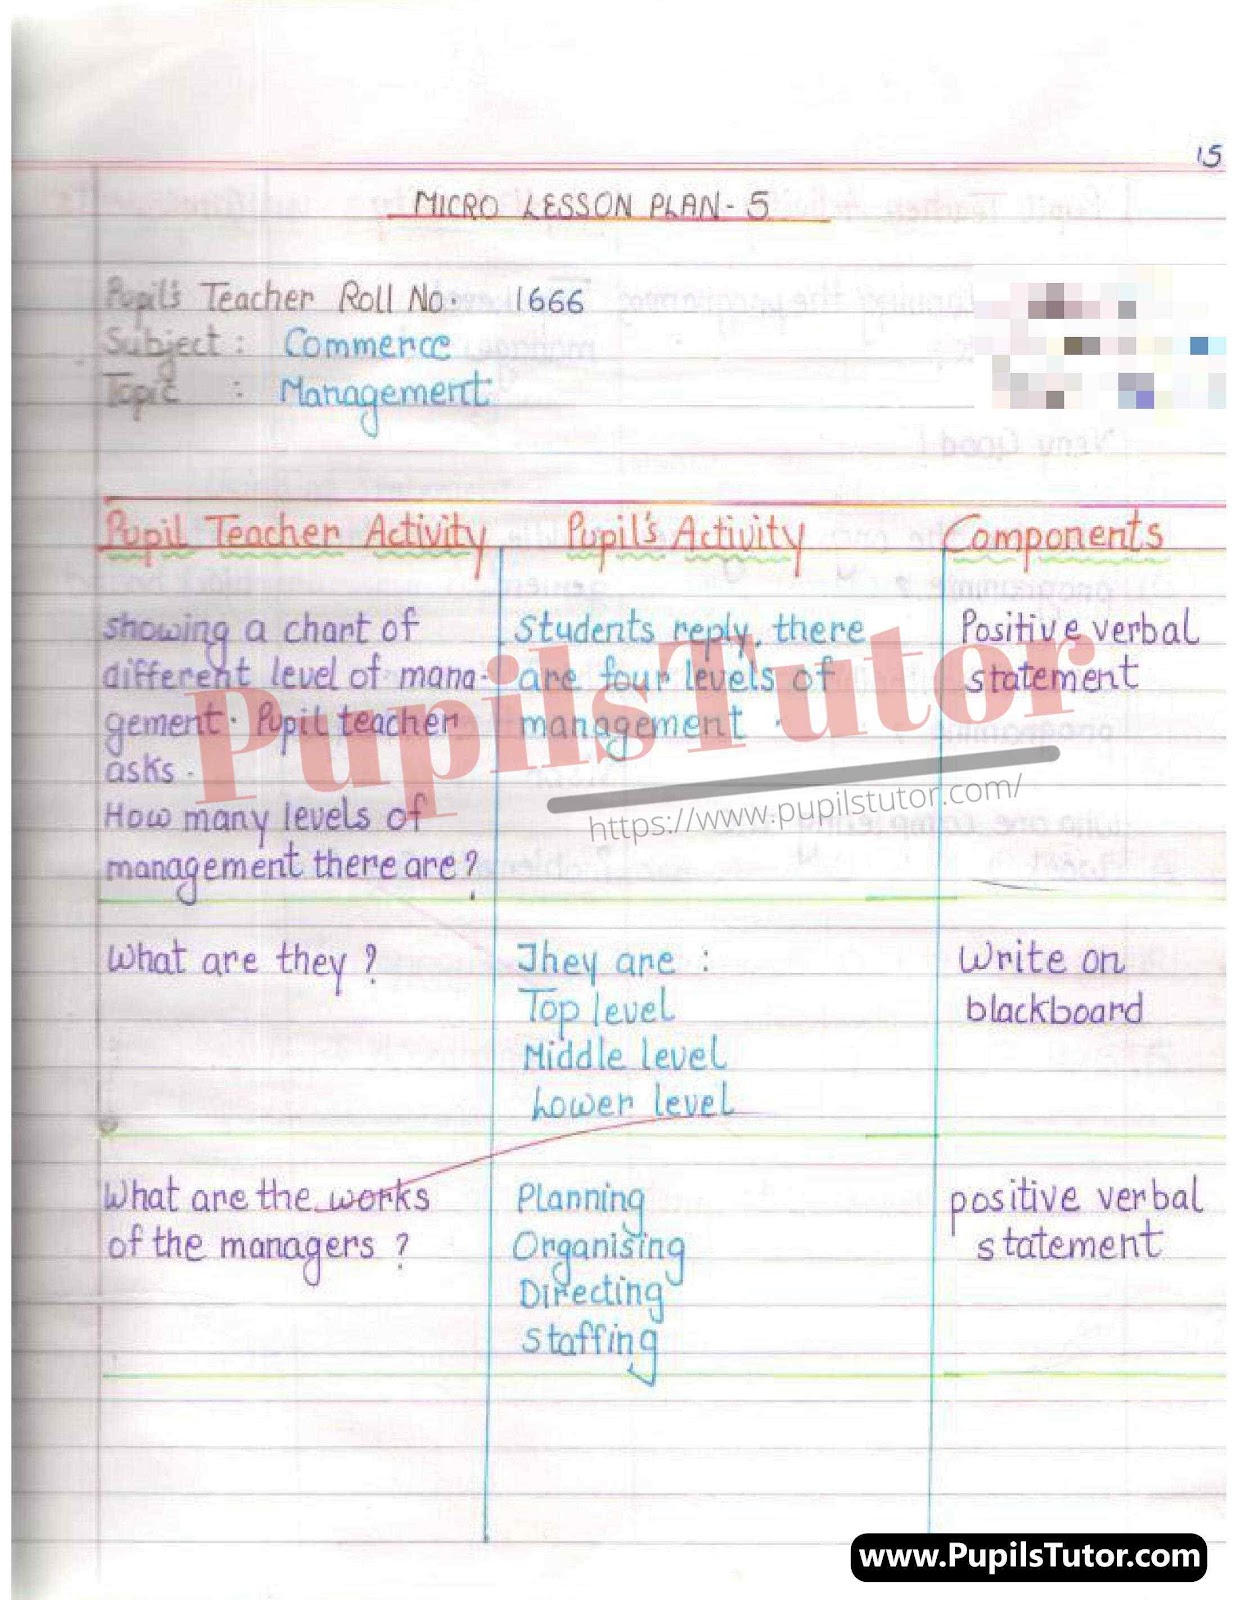 15
MICRO LESSON PLAN - 5
Pupil's Teacher Roll No. 1666
Subject : Commerce
Topic : Management
Pupil Teacher Activity Pupil's Activity Components
showing a chart of
different level of mana-
gement. Pupil teacher
asks.
How many levels of
management there are?
Students reply, there
are four levels of
management.
Positive verbal
statement
What are they ?
They are :
Top level
Middle level
Lower level
Write on
blackboard
What are the works
of the managers ?
Planning
Organising
Directing
Staffing
positive verbal
statement
PupilsTutor
https://www.pupilstutor.com/
www.PupilsTutor.com